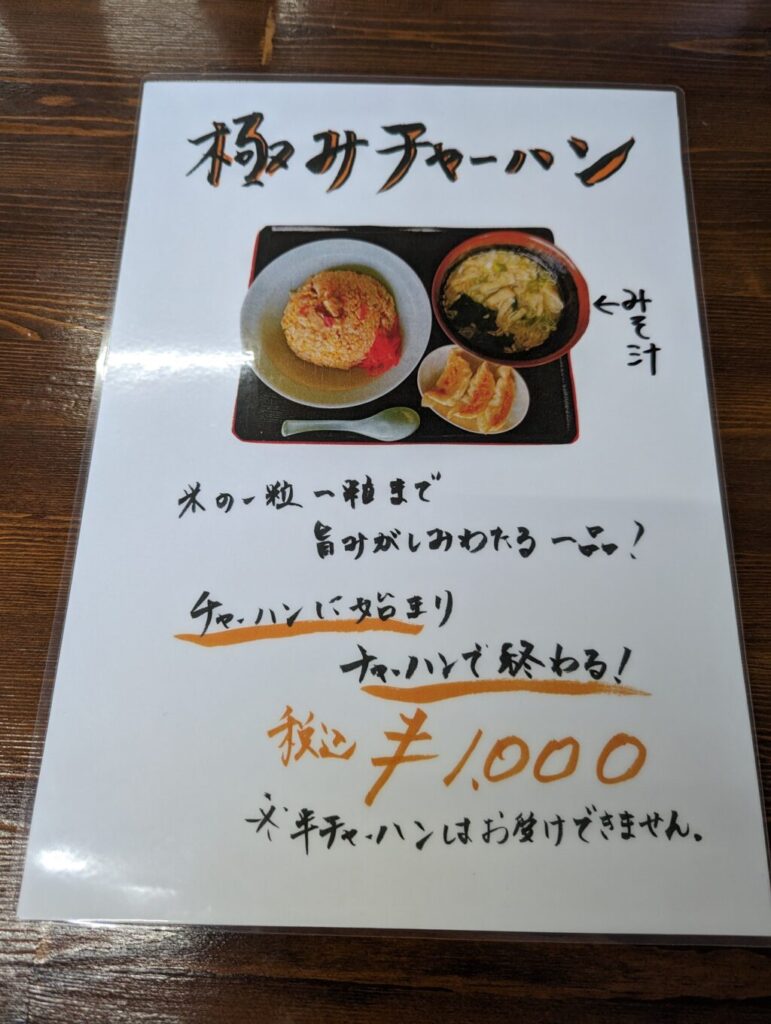 極みチャーハン
←みそ汁
米の一粒一粒まで
旨みがしみわたる一品！
チャーハンに始まり
チャーハンで終わる！
税込 ¥1,000
※半チャーハンはお受けできません。